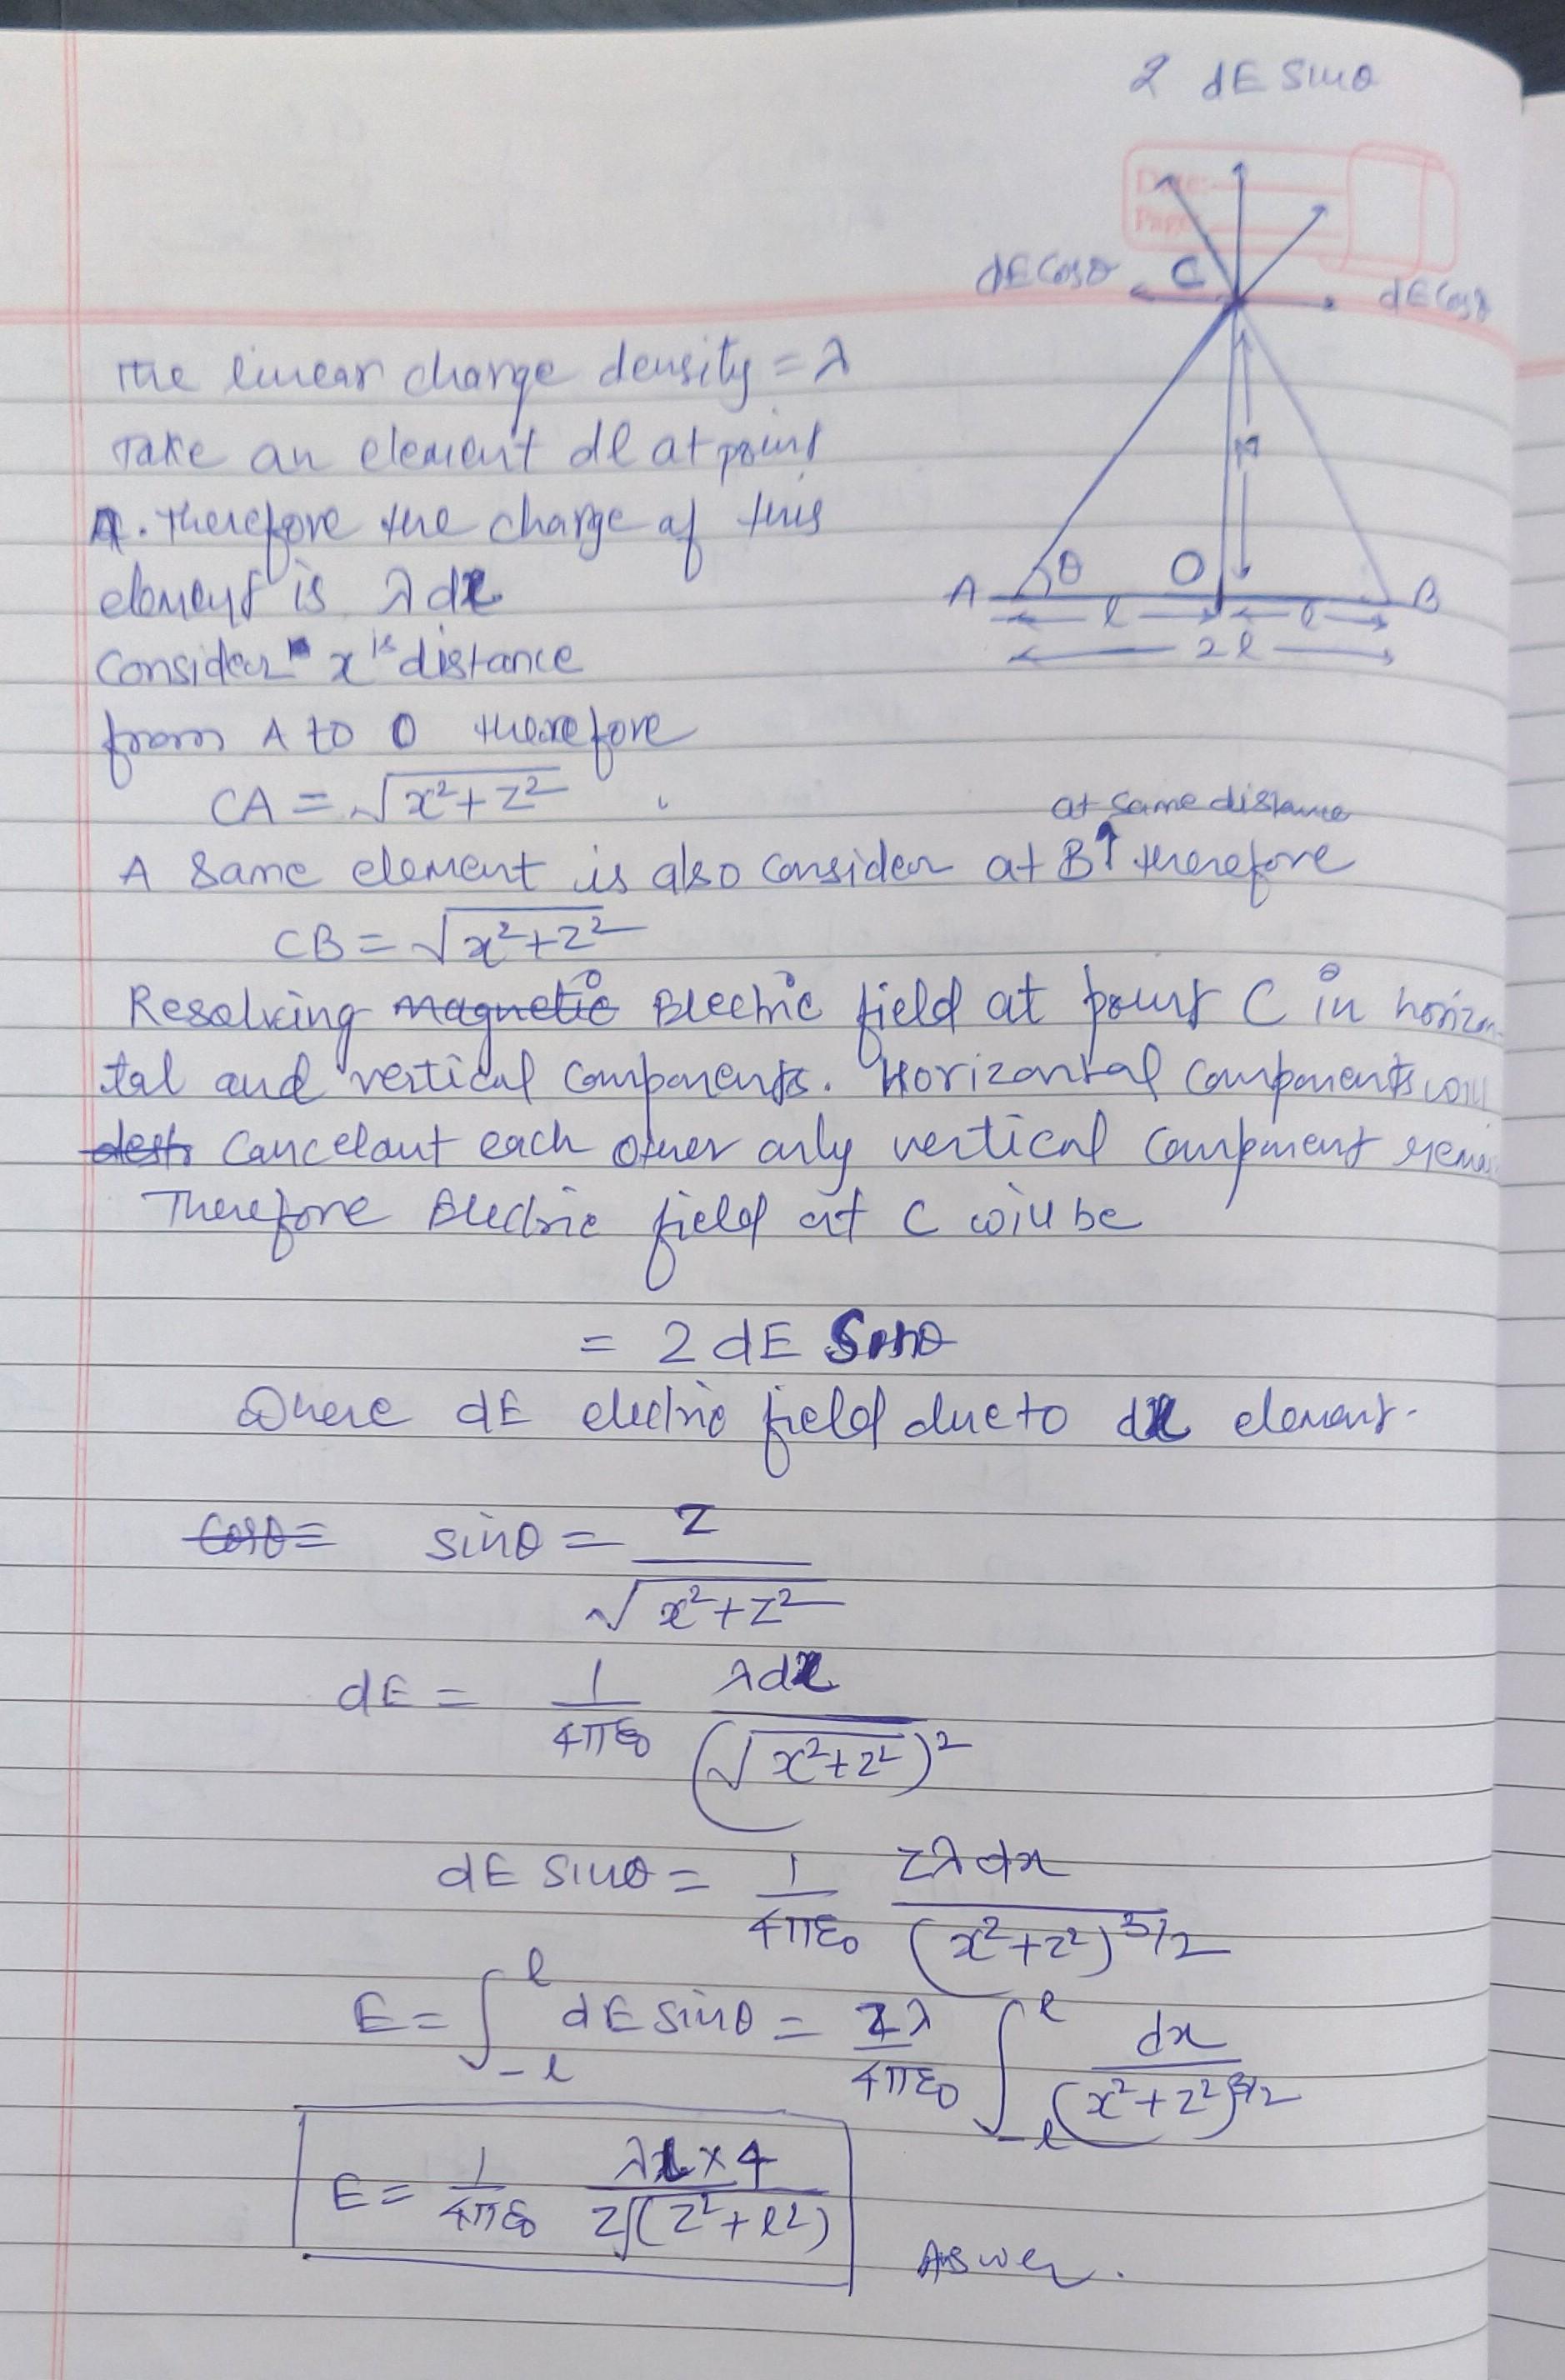 2 dE sinθ
Date:
Page:
dE cosθ C dE cosθ
The linear charge density = λ
Take an element dl at point
A. Therefore the charge of this
element is λdx
Consider x is distance
from A to O therefore
z
A θ O B
l l
2l
CA = √(x²+z²)
at same distance
A same element is also consider at B↑ therefore
CB = √(x²+z²)
Resolving magnetic Electric field at point C in horizon-
tal and vertical components. Horizontal components will
cancelout each other only vertical component
Therefore Electric field at C will be
= 2 dE Sinθ
Where dE electric field due to dx element.
Cosθ= sinθ = z / √(x²+z²)
dE = 1/4πε₀ λdx / (√(x²+z²))²
dE sinθ = 1/4πε₀ zλdx / (x²+z²)^3/2
E = ∫_{-l}^{l} dE sinθ = zλ/4πε₀ ∫_{-l}^{l} dx / (x²+z²)^3/2
E = 1/4πε₀ λl×4 / z√(z²+l²)
Aswer.